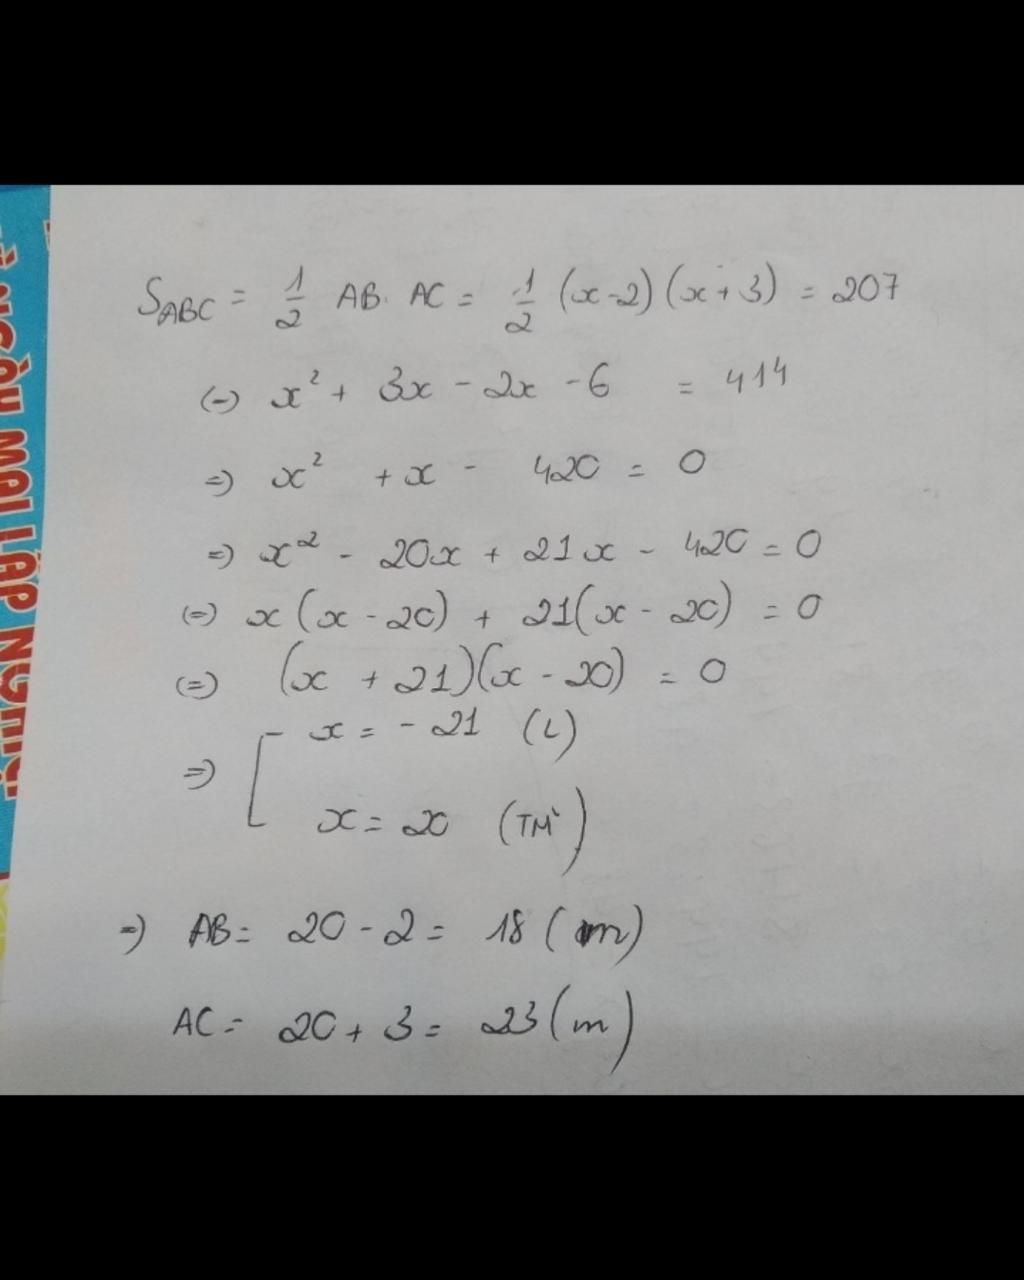 S_ABC = 1/2 AB. AC = 1/2 (x-2)(x+3) = 207
(=) x² + 3x - 2x - 6 = 414
=) x² + x - 420 = 0
=) x² - 20x + 21x - 420 = 0
(=) x(x - 20) + 21(x - 20) = 0
(=) (x + 21)(x - 20) = 0
=) [ x = - 21 (L)
x = 20 (TM)
=) AB = 20 - 2 = 18 (m)
AC = 20 + 3 = 23 (m)